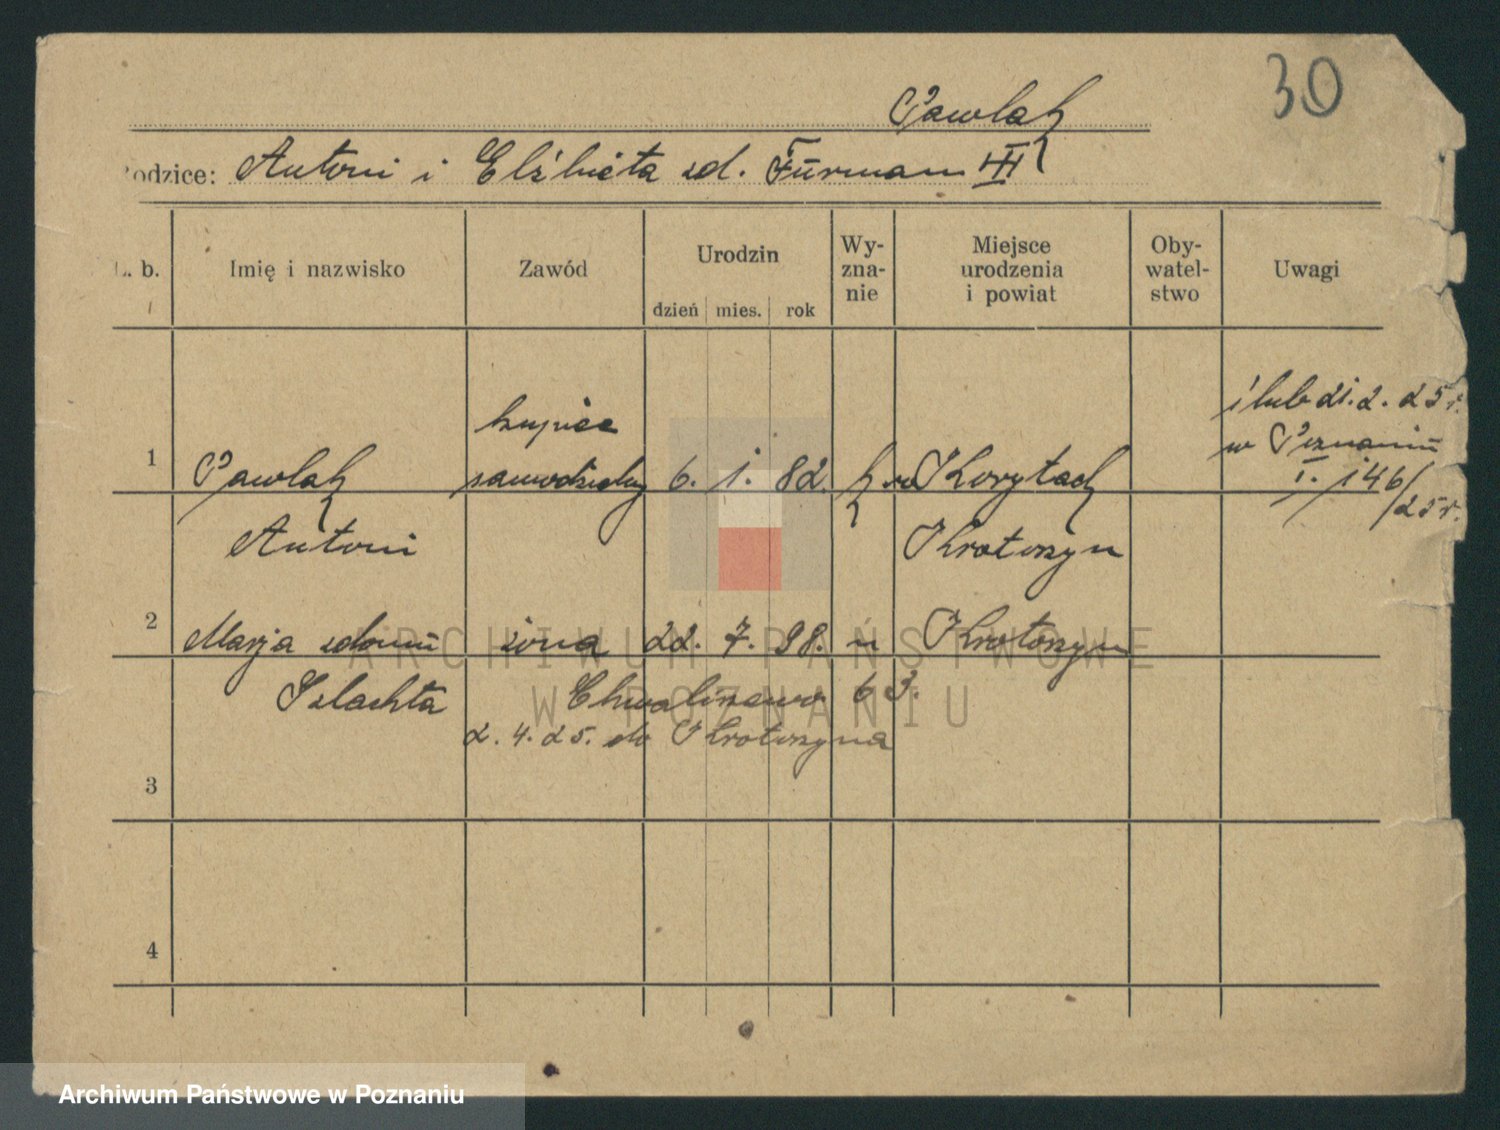 30
Pawlak
Rodzice: Antoni i Elżbieta zd. Furman III
L. b.
Imię i nazwisko
Zawód
Urodzin
dzień mies. rok
Wy-
zna-
nie
Miejsce
urodzenia
i powiat
Oby-
watel-
stwo
Uwagi
1
Pawlak
Antoni
kupiec
samodzielny
6. 1. 82.
k
w Korytach
Krotoszyn
ślub 21. 2. 25 r.
w Poznaniu
I. 146/
25 r.
2
Marja zdomu
Szlachta
żona
22. 7. 98.
"
Krotoszyn
Chwaliszewo 63.
2. 4. 25. do Krotoszyna
3
4
ARCHIWUM PAŃSTWOWE
W POZNANIU
Archiwum Państwowe w Poznaniu